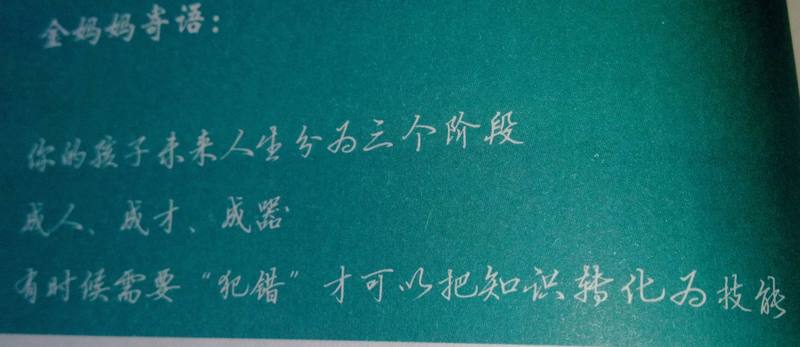 金妈妈寄语：
你的孩子未来人生分为三个阶段
成人、成才、成器
有时候需要“犯错”才可以把知识转化为技能